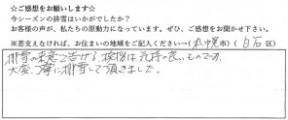 ☆ご感想をお願いします☆
今シーズンの排雪はいかがでしたか?
お客様の声が、私たちの原動力になっています。ぜひ、ご感想をお聞かせ下さい。
※差支えなければ、お住まいの地域をご記入ください→(札幌市)(白石区)
排雪の来意を告げる挨拶は気持の良いものでした。
大変、丁寧に排雪して頂きました。